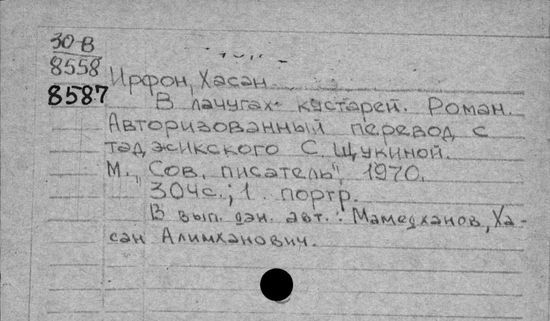 30-В
8558
8587
Ирфон, Хасан
В лачугах кустарей. Роман.
Авторизованный перевод с
таджикского С. Щукиной.
М., "Сов. писатель", 1970.
304с.; 1. портр.
В вып. дан. авт.: Мамедханов, Ха-
сан Алимханович.